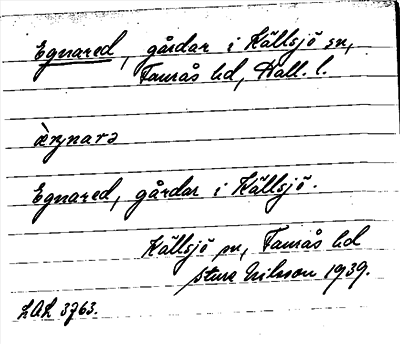 Egnared, gårdar i Källsjö sn,
Faurås hd, Hall. l.
ὰrynarə
Egnared, gårdar i Källsjö.
Källsjö sn, Faurås hd
Sture Eriksson 1939.
LAL 3763.